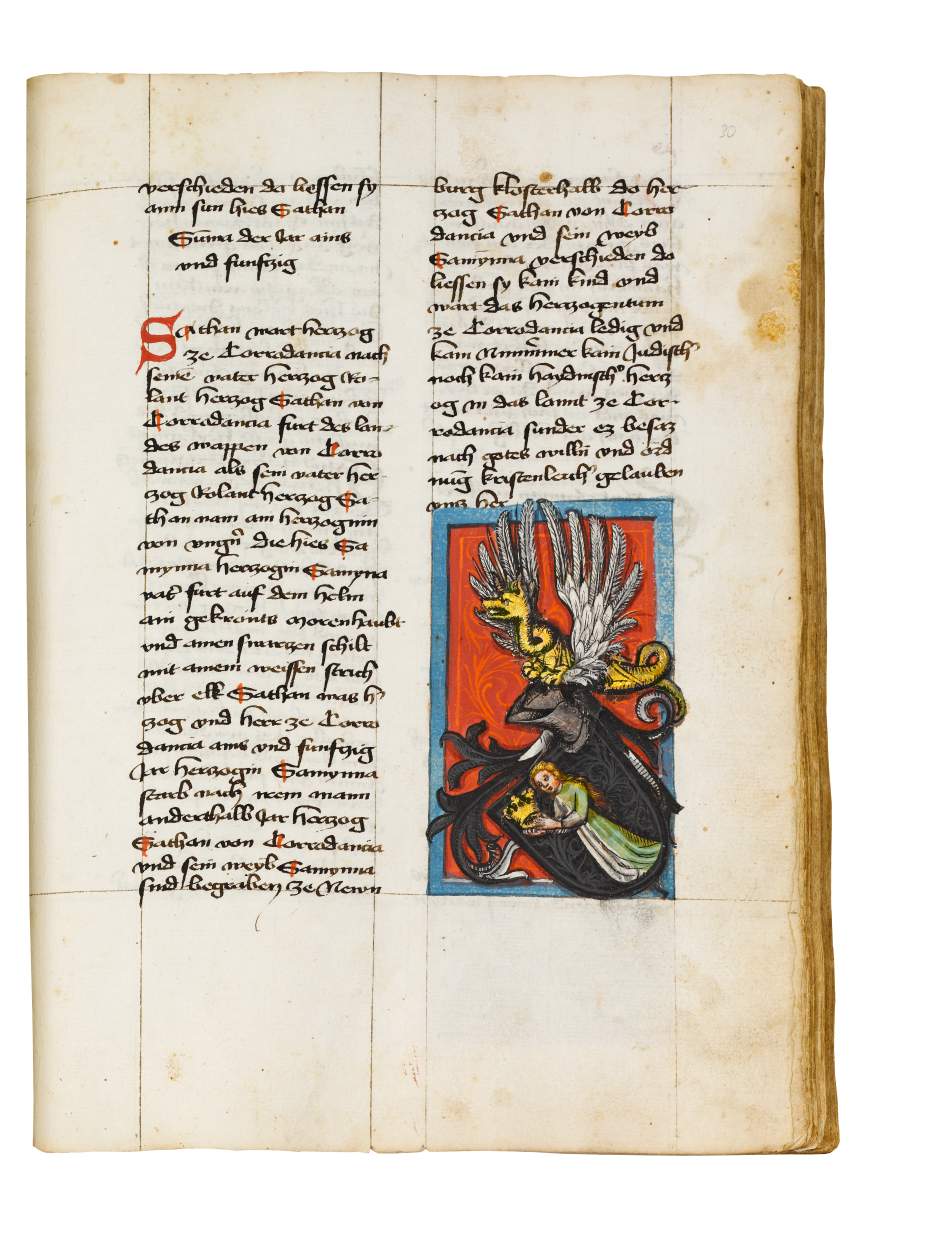 30
verschieden da liessen sy
ainn sun hies Sathan
Suma der Jar ains
vnd funfczig
Sathan wart herczog
ze Corradancia nach
seinē vater herczog Ro-
lant herczog Sathan von
Corradancia furt des lan-
des wappen von Corra
dancia als sein vater her-
zog Rolant herczog Sa-
than nam ain herczoginn
von vngern die hies Sa
mynna herczogin Samyna
vater furt auf dem helm
ain gekronts morenhaubt
vnd ainen swarczen schilt
mit ainem weissen strich
vber ekk Sathan was her
zog vnd herr ze Corra
dancia ains vnd funfczig
Jar herczogin Samynna
starb nach irem mann
anderthalb Jar herczog
Sathan von Corradancia
vnd sein weyb Samynna
sind begraben ze Newn
burg klosterhalb do her-
czog Sathan von Corra
dancia vnd sein weyb
Samynna verschieden do
liessen sy kain kind vnd
wart das herczogentum
ze Corradancia ledig vnd
kam Nimmer kain Judisch
noch kain haydnisch hercz
og in das lannt ze Cor-
radancia sunder ez besacz
nach gotes willn vnd ord
nūg kristenleich gelauben
vncz her